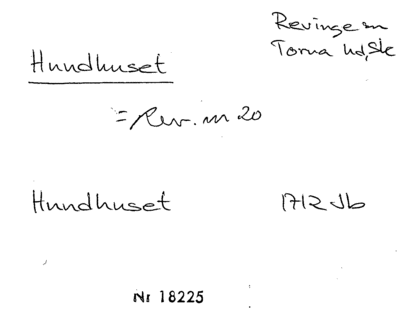 Revinge sn
Torna hd, Sk
Hundhuset
= Rev. nr 20
Hundhuset 1712 Jb
Nr 18225